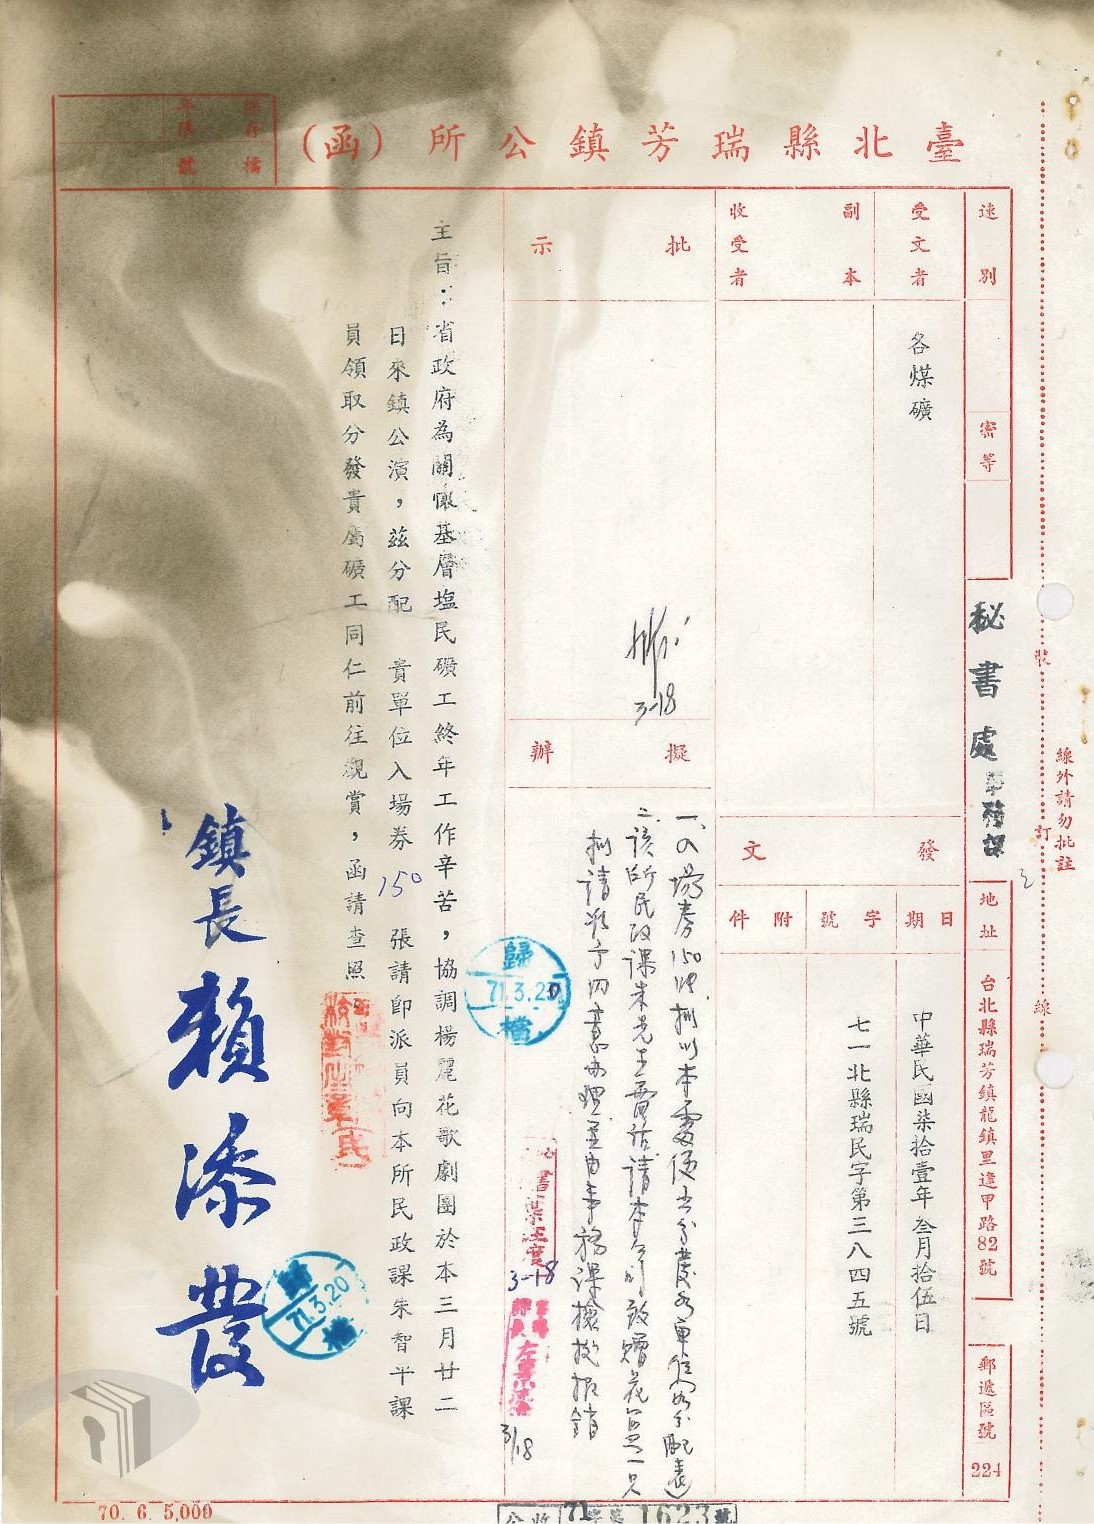 臺北縣瑞芳鎮公所（函）
保存年限
檔號
速別
密等
受文者
各煤礦
副本收受者
批示
3-18
擬辦
一、入場券150張擬以本處便出分發各單位如分配表
二、該所民政課朱先生電話請本公司致贈花籃一只
擬請准予同意辦理並由事務課檢據報銷
3-18
3/18
秘書處
事務課
地址
台北縣瑞芳鎮龍鎮里逢甲路82號
郵遞區號
224
發文
日期
中華民國柒拾壹年叁月拾伍日
字號
七一北縣瑞民字第三八四五號
附件
主旨：省政府為關懷基層塩民礦工終年工作辛苦，協調楊麗花歌劇團於本三月廿二
日來鎮公演，茲分配　貴單位入場券150張請即派員向本所民政課朱智平課
員領取分發貴屬礦工同仁前往觀賞，函請查照。
歸檔
71.3.20
鎮長賴添發
歸檔
71.3.20
裝訂線
線外請勿批註
70. 6. 5,000
收 71 1623號